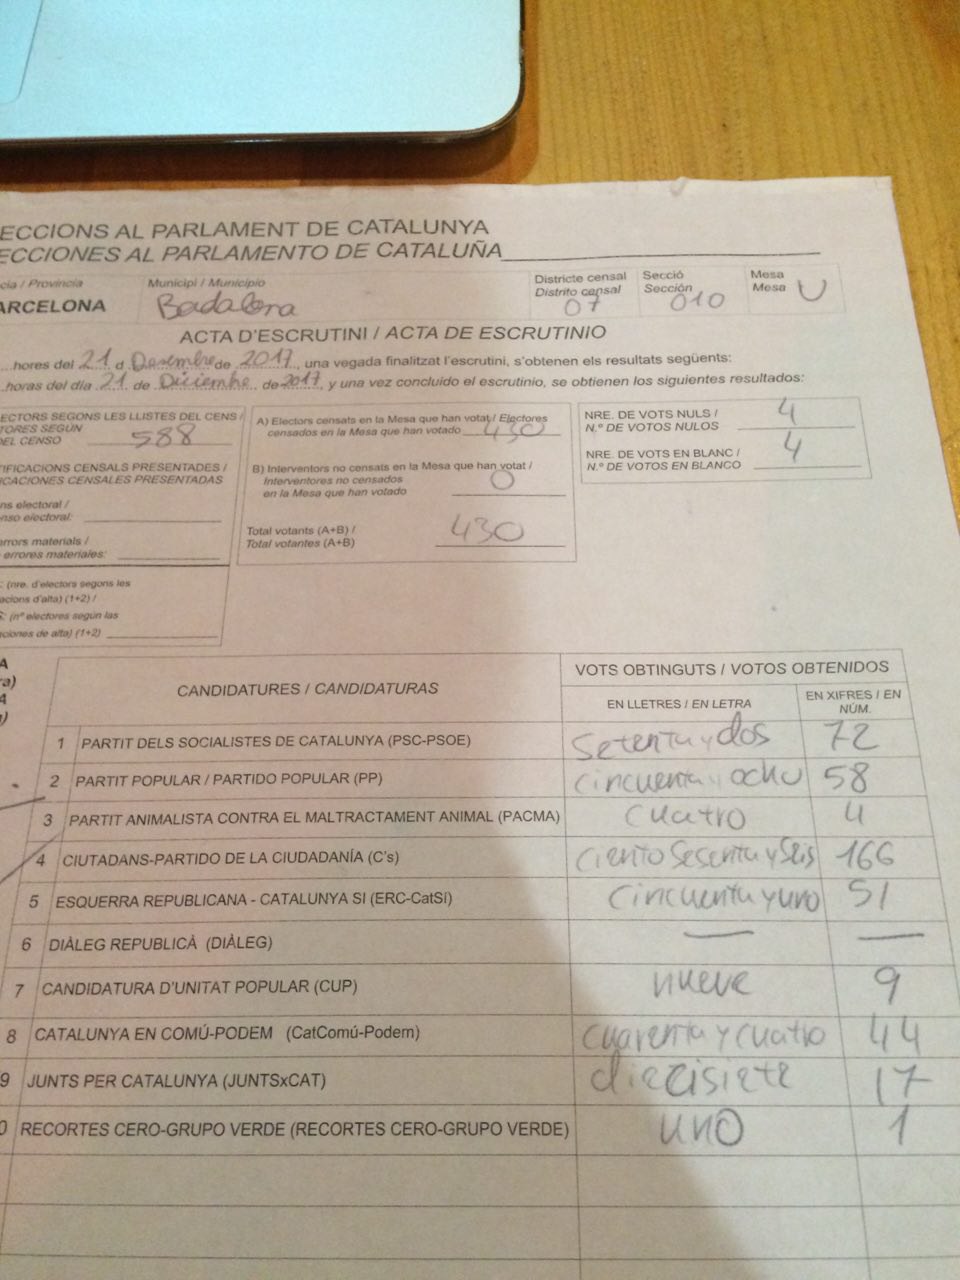 ECCIONS AL PARLAMENT DE CATALUNYA
ECCIONES AL PARLAMENTO DE CATALUÑA
cia / Provincia
ARCELONA
Municipi / Municipio
Badalona
Districte censal
Distrito censal
07
Secció
Sección
010
Mesa
Mesa U
ACTA D'ESCRUTINI / ACTA DE ESCRUTINIO
...hores del 21 d Desembre de 2017, una vegada finalitzat l'escrutini, s'obtenen els resultats següents:
horas del día 21 de Diciembre de 2017, y una vez concluido el escrutinio, se obtienen los siguientes resultados:
ECTORS SEGONS LES LLISTES DEL CENS /
TORES SEGÚN
DEL CENSO 588
TIFICACIONS CENSALS PRESENTADES /
ICACIONES CENSALES PRESENTADAS
ns electoral /
nso electoral:
errors materials /
errores materiales:
: (nre. d'electors segons les
acions d'alta) (1+2) /
S: (nº electores según las
aciones de alta) (1+2)
A) Electors censats en la Mesa que han votat / Electores
censados en la Mesa que han votado 430
B) Interventors no censats en la Mesa que han votat /
Interventores no censados
en la Mesa que han votado 0
Total votants (A+B) /
Total votantes (A+B) 430
NRE. DE VOTS NULS /
N.º DE VOTOS NULOS 4
NRE. DE VOTS EN BLANC /
N.º DE VOTOS EN BLANCO 4
A
ra)
A
)
CANDIDATURES / CANDIDATURAS
VOTS OBTINGUTS / VOTOS OBTENIDOS
EN LLETRES / EN LETRA
EN XIFRES / EN
NÚM.
1 PARTIT DELS SOCIALISTES DE CATALUNYA (PSC-PSOE) Setenta y dos 72
2 PARTIT POPULAR / PARTIDO POPULAR (PP) cincuenta y ocho 58
3 PARTIT ANIMALISTA CONTRA EL MALTRACTAMENT ANIMAL (PACMA) cuatro 4
4 CIUTADANS-PARTIDO DE LA CIUDADANÍA (C's) ciento sesenta y seis 166
5 ESQUERRA REPUBLICANA - CATALUNYA SI (ERC-CatSí) cincuenta y uno 51
6 DIÀLEG REPUBLICÀ (DIÀLEG) — —
7 CANDIDATURA D'UNITAT POPULAR (CUP) nueve 9
8 CATALUNYA EN COMÚ-PODEM (CatComú-Podem) cuarenta y cuatro 44
9 JUNTS PER CATALUNYA (JUNTSxCAT) diecisiete 17
0 RECORTES CERO-GRUPO VERDE (RECORTES CERO-GRUPO VERDE) uno 1